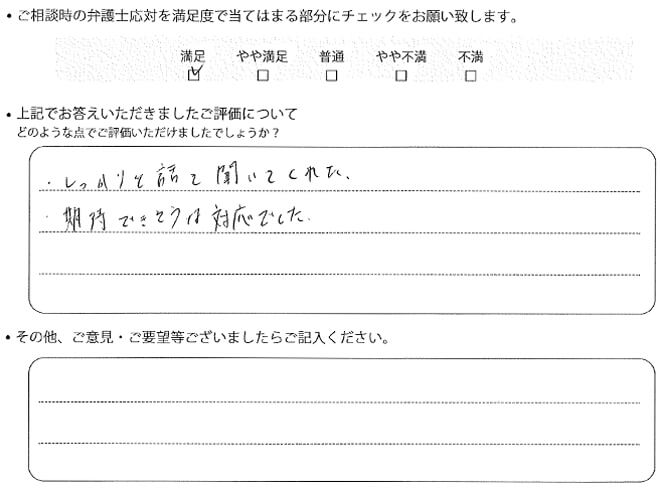 • ご相談時の弁護士応対を満足度で当てはまる部分にチェックをお願い致します。
満足 やや満足 普通 やや不満 不満
☑ □ □ □ □
• 上記でお答えいただきましたご評価について
どのような点でご評価いただけましたでしょうか?
・しっかりと話を聞いてくれた。
・期待できそうな対応でした。
• その他、ご意見・ご要望等ございましたらご記入ください。